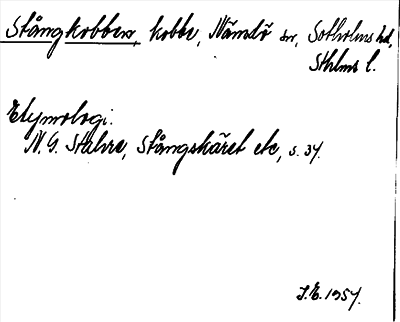 Stångkobben, kobbe, Nämdö sn, Sotholms hd,
Sthlms l.
Etymologi.
N. G. Stahre, Stångskäret etc, s. 37.
1957.